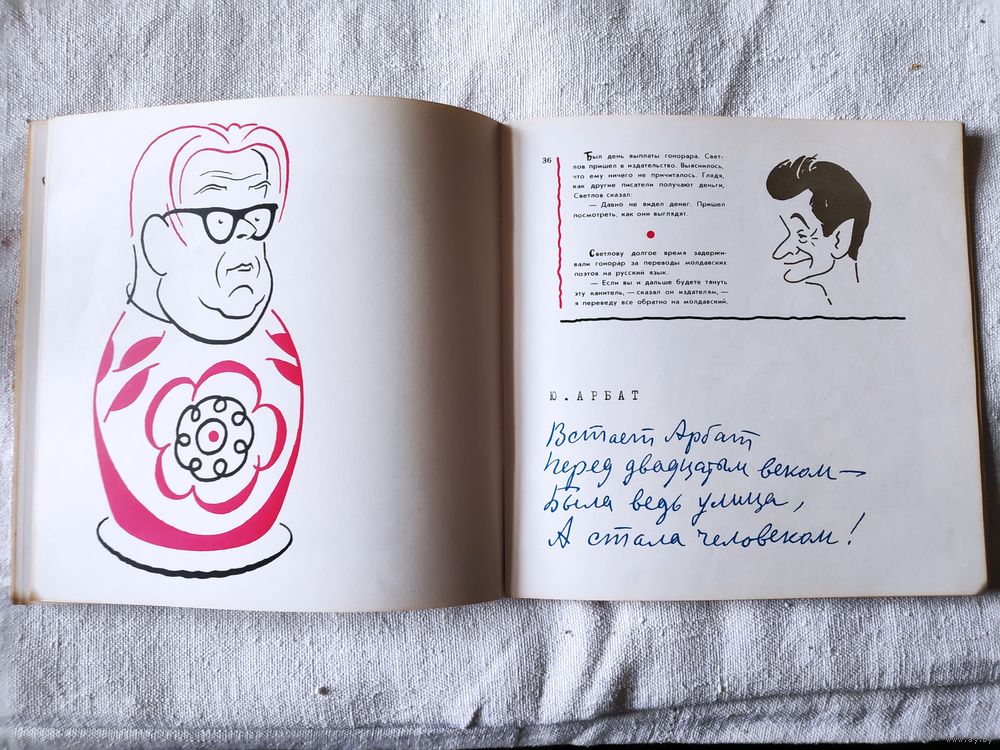 36
Был день выплаты гонорара. Свет-
лов пришел в издательство. Выяснилось,
что ему ничего не причиталось. Глядя,
как другие писатели получают деньги,
Светлов сказал:
— Давно не видел денег. Пришел
посмотреть, как они выглядят.
Светлову долгое время задержи-
вали гонорар за переводы молдавских
поэтов на русский язык.
— Если вы и дальше будете тянуть
эту канитель, — сказал он издателям, —
я переведу все обратно на молдавский.
Ю. АРБАТ
Встает Арбат
Перед двадцатым веком —
Была ведь улица,
А стала человеком!